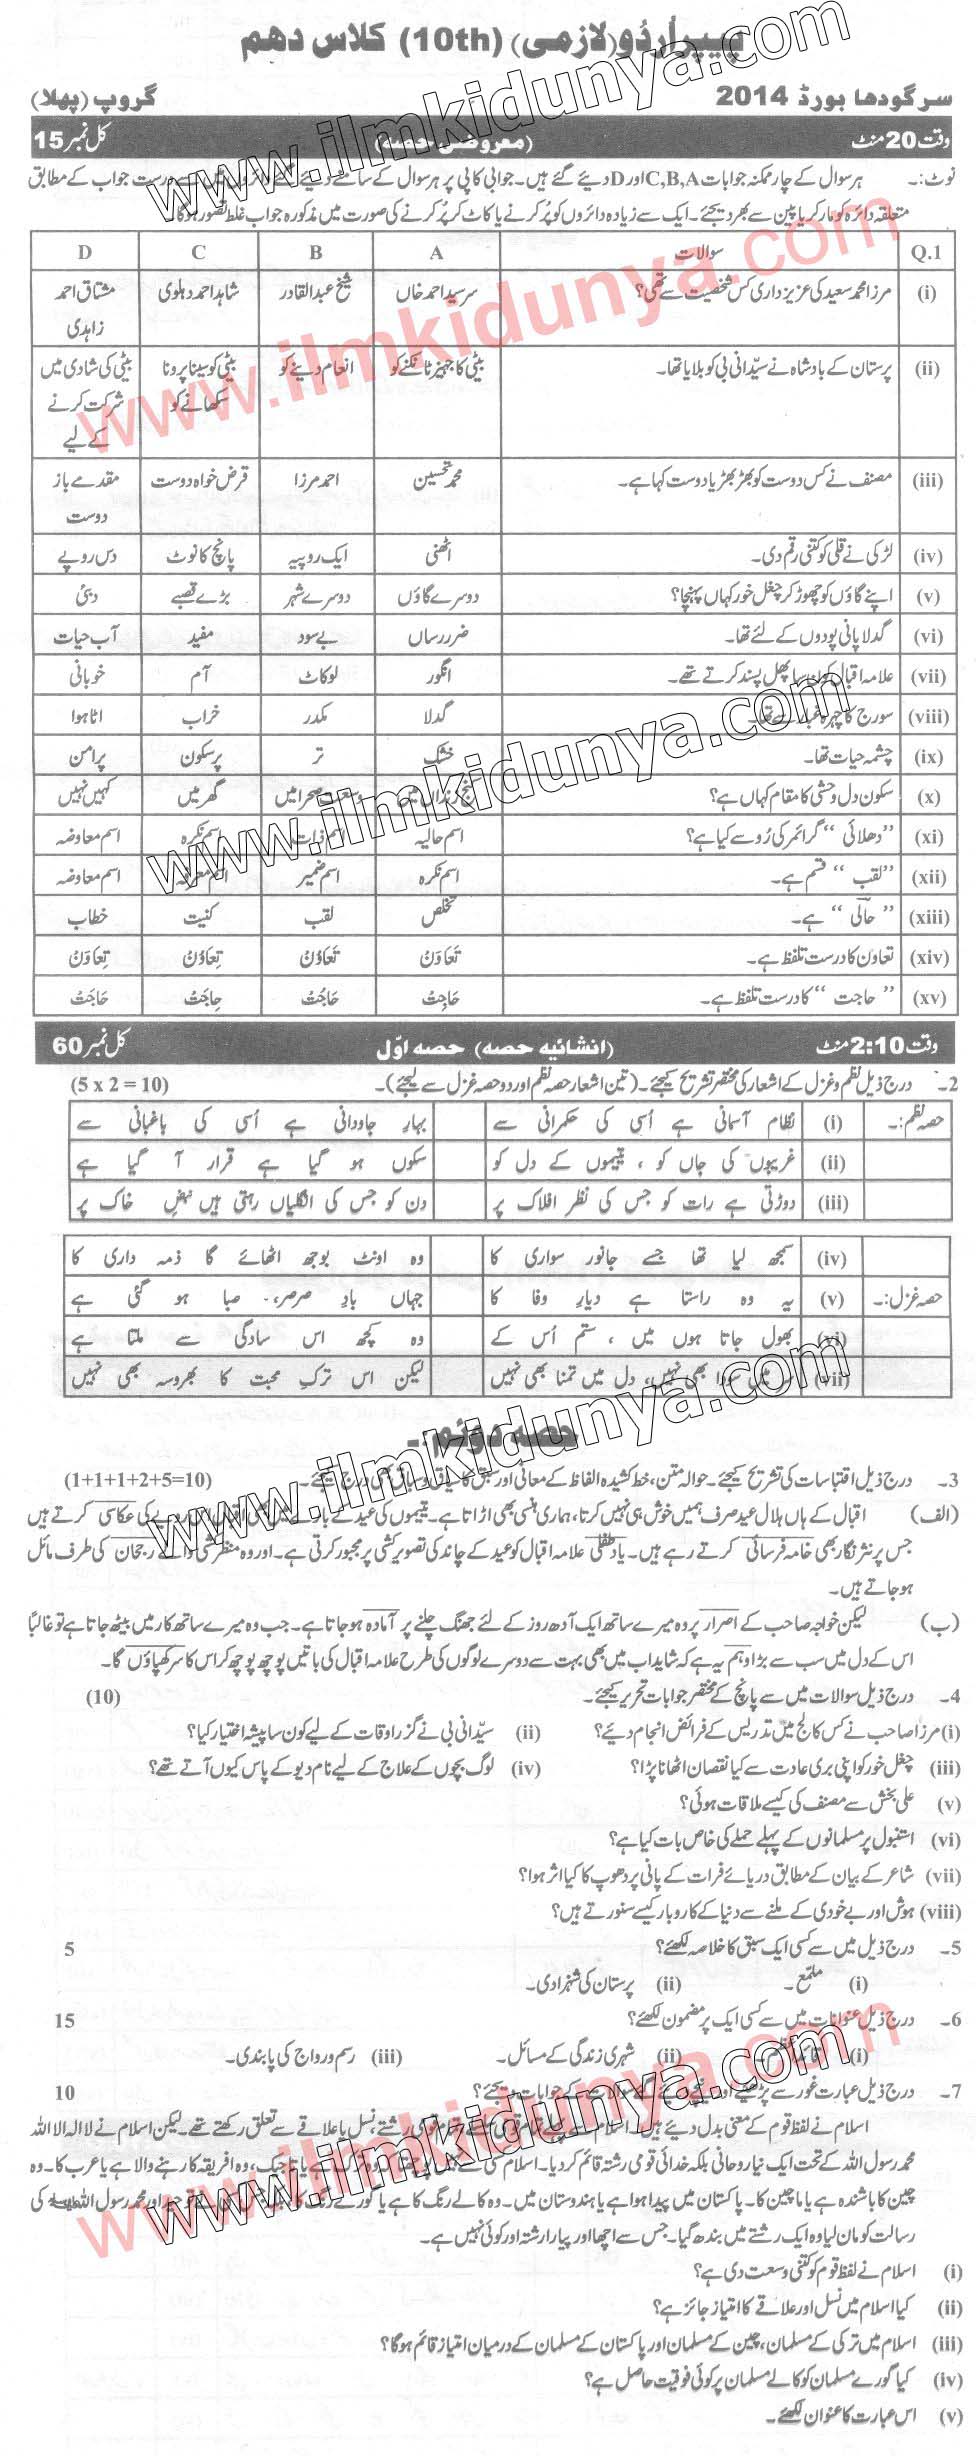 پیپر اُردو (لازمی) (10th) کلاس دھم
سرگودھا بورڈ 2014 گروپ (پھلا)
وقت 20 منٹ (معروضی حصہ) کل نمبر 15
نوٹ:۔ ہر سوال کے چار ممکنہ جوابات C,B,A اور D دیئے گئے ہیں۔ جوابی کاپی پر ہر سوال کے سامنے دیئے گئے دائروں میں سے درست جواب کے مطابق
متعلقہ دائرہ کو مارکر یا پین سے بھر دیجئے۔ ایک سے زیادہ دائروں کو پُر کرنے یا کاٹ کر پُر کرنے کی صورت میں مذکورہ جواب غلط تصور ہو گا۔
Q.1 سوالات A B C D
(i) مرزا محمد سعید کی عزیز داری کس شخصیت سے تھی؟ سرسید احمد خاں شیخ عبدالقادر شاہد احمد دہلوی مشتاق احمد زاہدی
(ii) پرستان کے بادشاہ نے سیّدانی بی کو بلایا تھا۔ بیٹی کا جہیز ٹانکنے کو انعام دینے کو بیٹی کو سینا پرونا سکھانے کو بیٹی کی شادی میں شرکت کرنے کے لیے
(iii) مصنف نے کس دوست کو بھڑبھڑیا دوست کہا ہے۔ محمد تحسین احمد مرزا قرض خواہ دوست مقدمے باز دوست
(iv) لڑکی نے قلی کو کتنی رقم دی۔ اٹھنی ایک روپیہ پانچ کا نوٹ دس روپے
(v) اپنے گاؤں کو چھوڑ کر چغل خور کہاں پہنچا؟ دوسرے گاؤں دوسرے شہر بڑے قصبے دبئی
(vi) گدلا پانی پودوں کے لئے تھا۔ ضرر رساں بے سود مفید آب حیات
(vii) علامہ اقبال کون سا پھل پسند کرتے تھے۔ انگور لوکاٹ آم خوبانی
(viii) سورج کا چہرہ غبار سے تھا۔ گدلا مکدر خراب اٹا ہوا
(ix) چشمہ حیات تھا۔ خشک تر پرسکون پرامن
(x) سکون دل وحشی کا مقام کہاں ہے؟ کنج زنداں میں وسعت صحرا میں گھر میں کہیں نہیں
(xi) ”دھلائی“ گرائمر کی رُو سے کیا ہے؟ اسم حالیہ اسم ذات اسم نکرہ اسم معاوضہ
(xii) ”لقب“ قسم ہے۔ اسم نکرہ اسم ضمیر اسم معرفہ اسم معاوضہ
(xiii) ”حالی“ ہے۔ تخلص لقب کنیت خطاب
(xiv) تعاون کا درست تلفظ ہے۔ تَعَاوَنْ تَعَاوُنْ تِعَاوُنْ تِعَاوَنْ
(xv) ”حاجت“ کا درست تلفظ ہے۔ حَاجِتْ حَاجُتْ حِاجَتْ حَاجَتْ
وقت 2:10 منٹ (انشائیہ حصہ) حصہ اوّل کل نمبر 60
2۔ درج ذیل نظم و غزل کے اشعار کی مختصر تشریح کیجئے۔ (تین اشعار حصہ نظم اور دو حصہ غزل سے لیجئے)۔ (5 x 2 = 10)
حصہ نظم:۔ (i) نظام آسمانی ہے اُسی کی حکمرانی سے بہارِ جاودانی ہے اُسی کی باغبانی سے
(ii) غریبوں کی جاں کو ، یتیموں کے دل کو سکوں ہو گیا ہے قرار آ گیا ہے
(iii) دوڑتی ہے رات کو جس کی نظر افلاک پر دن کو جس کی انگلیاں رہتی ہیں نبضِ خاک پر
(iv) سمجھ لیا تھا جسے جانور سواری کا وہ اونٹ بوجھ اٹھائے گا ذمہ داری کا
حصہ غزل:۔ (v) یہ وہ راستا ہے دیارِ وفا کا جہاں بادِ صرصر، صبا ہو گئی ہے
(vi) بھول جاتا ہوں میں ، ستم اُس کے وہ کچھ اس سادگی سے ملتا ہے
(vii) سر میں سودا بھی نہیں، دل میں تمنا بھی نہیں لیکن اس ترکِ محبت کا بھروسہ بھی نہیں
حصہ دوئم:۔
3۔ درج ذیل اقتباسات کی تشریح کیجئے۔ حوالہ متن، خط کشیدہ الفاظ کے معانی اور سبق کا سیاق و سباق بھی درج کیجئے۔ (1+1+1+2+5=10)
(الف) اقبال کے ہاں ہلال عید صرف ہمیں خوش ہی نہیں کرتا، ہماری ہنسی بھی اڑاتا ہے۔ یتیموں کی عید کے بارے میں بھی اقبال اس رویے کی عکاسی کرتے ہیں
جس پر نثر نگار بھی خامہ فرسائی کرتے رہے ہیں۔ یادِ طفلی علامہ اقبال کو عید کے چاند کی تصویر کشی پر مجبور کرتی ہے۔ اور وہ منظر کشی والے رجحان کی طرف مائل
ہو جاتے ہیں۔
(ب) لیکن خواجہ صاحب کے اصرار پر وہ میرے ساتھ ایک آدھ روز کے لئے جھنگ چلنے پر آمادہ ہو جاتا ہے۔ جب وہ میرے ساتھ کار میں بیٹھ جاتا ہے تو غالباً
اس کے دل میں سب سے بڑا وہم یہ ہے کہ شاید اب میں بھی بہت سے دوسرے لوگوں کی طرح علامہ اقبال کی باتیں پوچھ پوچھ کر اس کا سر کھپاؤں گا۔
4۔ درج ذیل سوالات میں سے پانچ کے مختصر جوابات تحریر کیجئے۔ (10)
(i) مرزا صاحب نے کس کالج میں تدریس کے فرائض انجام دیئے؟ (ii) سیّدانی بی نے گزر اوقات کے لیے کون سا پیشہ اختیار کیا؟
(iii) چغل خور کو اپنی بری عادت سے کیا نقصان اٹھانا پڑا؟ (iv) لوگ بچوں کے علاج کے لیے نام دیو کے پاس کیوں آتے تھے؟
(v) علی بخش سے مصنف کی کیسے ملاقات ہوئی؟
(vi) استنبول پر مسلمانوں کے پہلے حملے کی خاص بات کیا ہے؟
(vii) شاعر کے بیان کے مطابق دریائے فرات کے پانی پر دھوپ کا کیا اثر ہوا؟
(viii) ہوش اور بے خودی کے ملنے سے دنیا کے کاروبار کیسے سنورتے ہیں؟
5۔ درج ذیل میں سے کسی ایک سبق کا خلاصہ لکھئے؟ 5
(i) ملمّع۔ (ii) پرستان کی شہزادی۔
6۔ درج ذیل عنوانات میں سے کسی ایک پر مضمون لکھئے؟ 15
(i) قائد اعظم۔ (ii) شہری زندگی کے مسائل۔ (iii) رسم و رواج کی پابندی۔
7۔ درج ذیل عبارت غور سے پڑھیئے اور نیچے دیئے گئے سوالات کے جوابات دیجئے؟ 10
اسلام نے لفظ قوم کے معنی بدل دیئے ہیں۔ اسلام سے پہلے تمام قومی سلسلے، تمام قومی رشتے، نسل یا علاقے سے تعلق رکھتے تھے۔ لیکن اسلام نے لا الہ الا اللہ
محمد رسول اللہ کے تحت ایک نیا روحانی بلکہ خدائی قومی رشتہ قائم کر دیا۔ اسلام کسی سے نہیں پوچھتا کہ وہ ترک ہے یا تاجیک، وہ افریقہ کا رہنے والا ہے یا عرب کا۔ وہ
چین کا باشندہ ہے یا ماچین کا۔ پاکستان میں پیدا ہوا ہے یا ہندوستان میں۔ وہ کالے رنگ کا ہے یا گورے رنگ کا بلکہ جس کسی نے توحید اور محمد رسول اللہ ﷺ کی
رسالت کو مان لیا وہ ایک رشتے میں بندھ گیا۔ جس سے اچھا اور پیارا رشتہ اور کوئی نہیں ہے۔
(i) اسلام نے لفظ قوم کو کتنی وسعت دی ہے؟
(ii) کیا اسلام میں نسل اور علاقے کا امتیاز جائز ہے؟
(iii) اسلام میں ترکی کے مسلمان، چین کے مسلمان اور پاکستان کے مسلمان کے درمیان امتیاز قائم ہو گا؟
(iv) کیا گورے مسلمان کو کالے مسلمان پر کوئی فوقیت حاصل ہے؟
(v) اس عبارت کا عنوان لکھئے۔
www.ilmkidunya.com
www.ilmkidunya.com
www.ilmkidunya.com
www.ilmkidunya.com
www.ilmkidunya.com
www.ilmkidunya.com